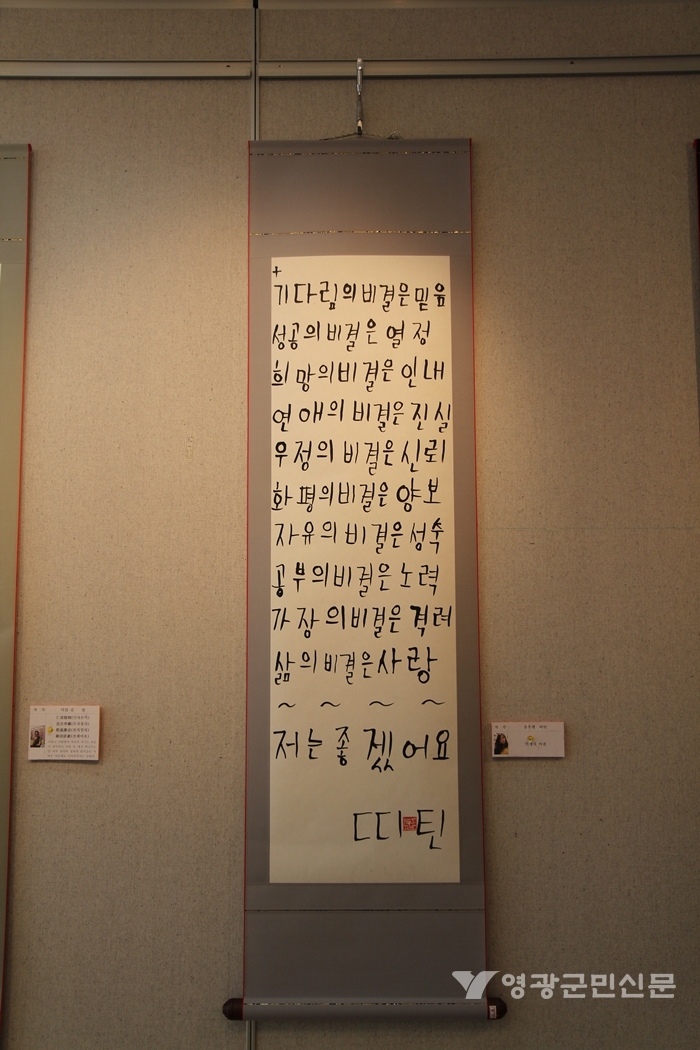 +
기다림의 비결은 믿음
성공의 비결은 열정
희망의 비결은 인내
연애의 비결은 진실
우정의 비결은 신뢰
화평의 비결은 양보
자유의 비결은 성숙
공부의 비결은 노력
가장의 비결은 격려
삶의 비결은 사랑
~ ~ ~ ~
저는 좋겠어요
띠틴
영광군민신문